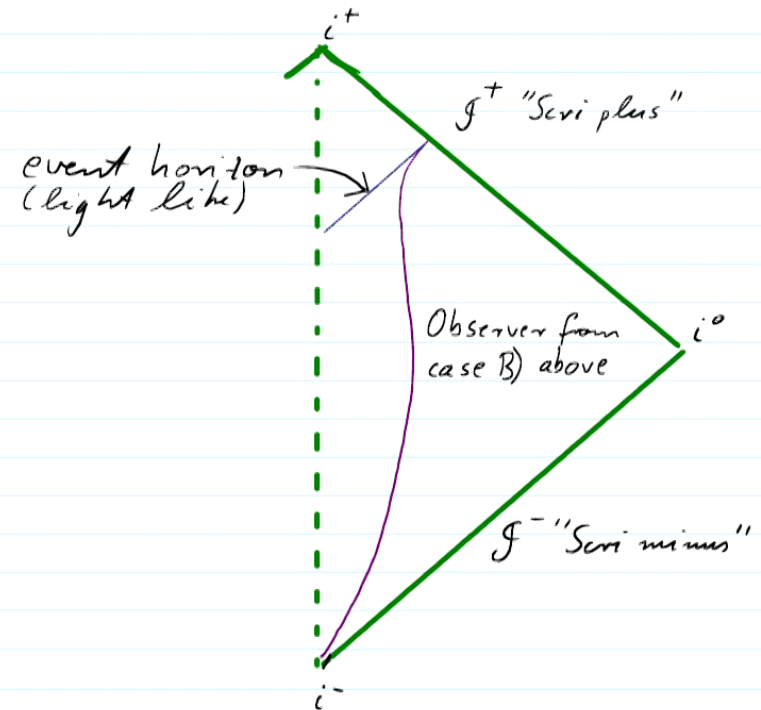 i⁺
𝓘⁺ "Scri plus"
event horizon
(light like)
i⁰
Observer from
case B) above
𝓘⁻ "Scri minus"
i⁻